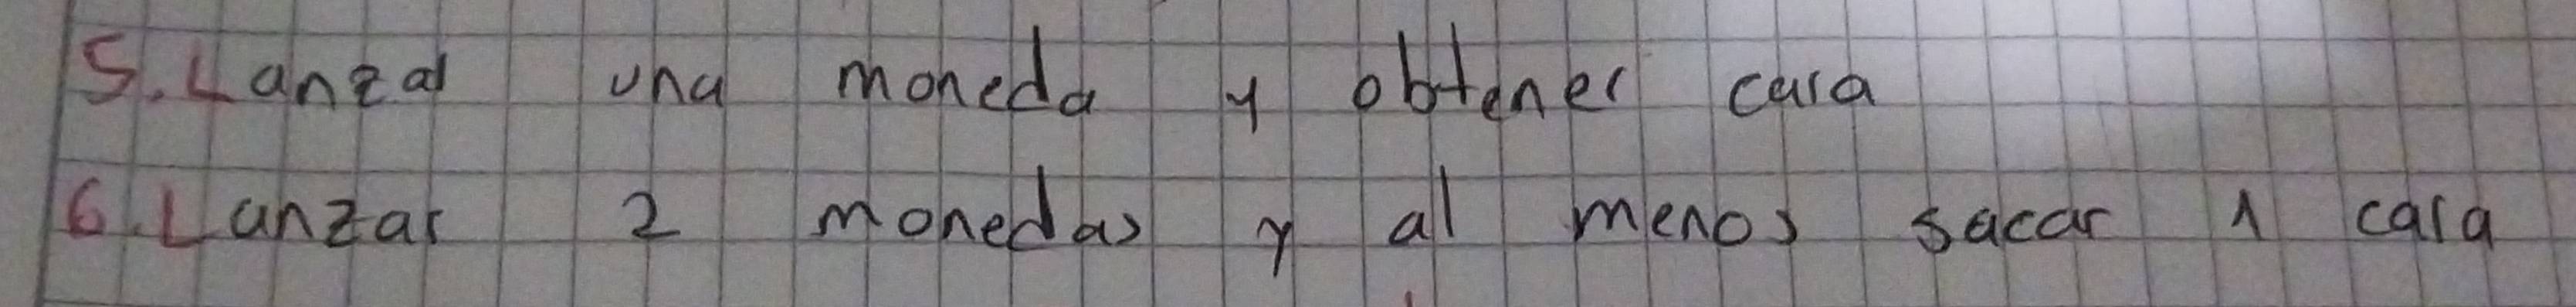 5. Lanzar una moneda y obtener cara
6. Lanzar 2 monedas y al menos sacar 1 cara